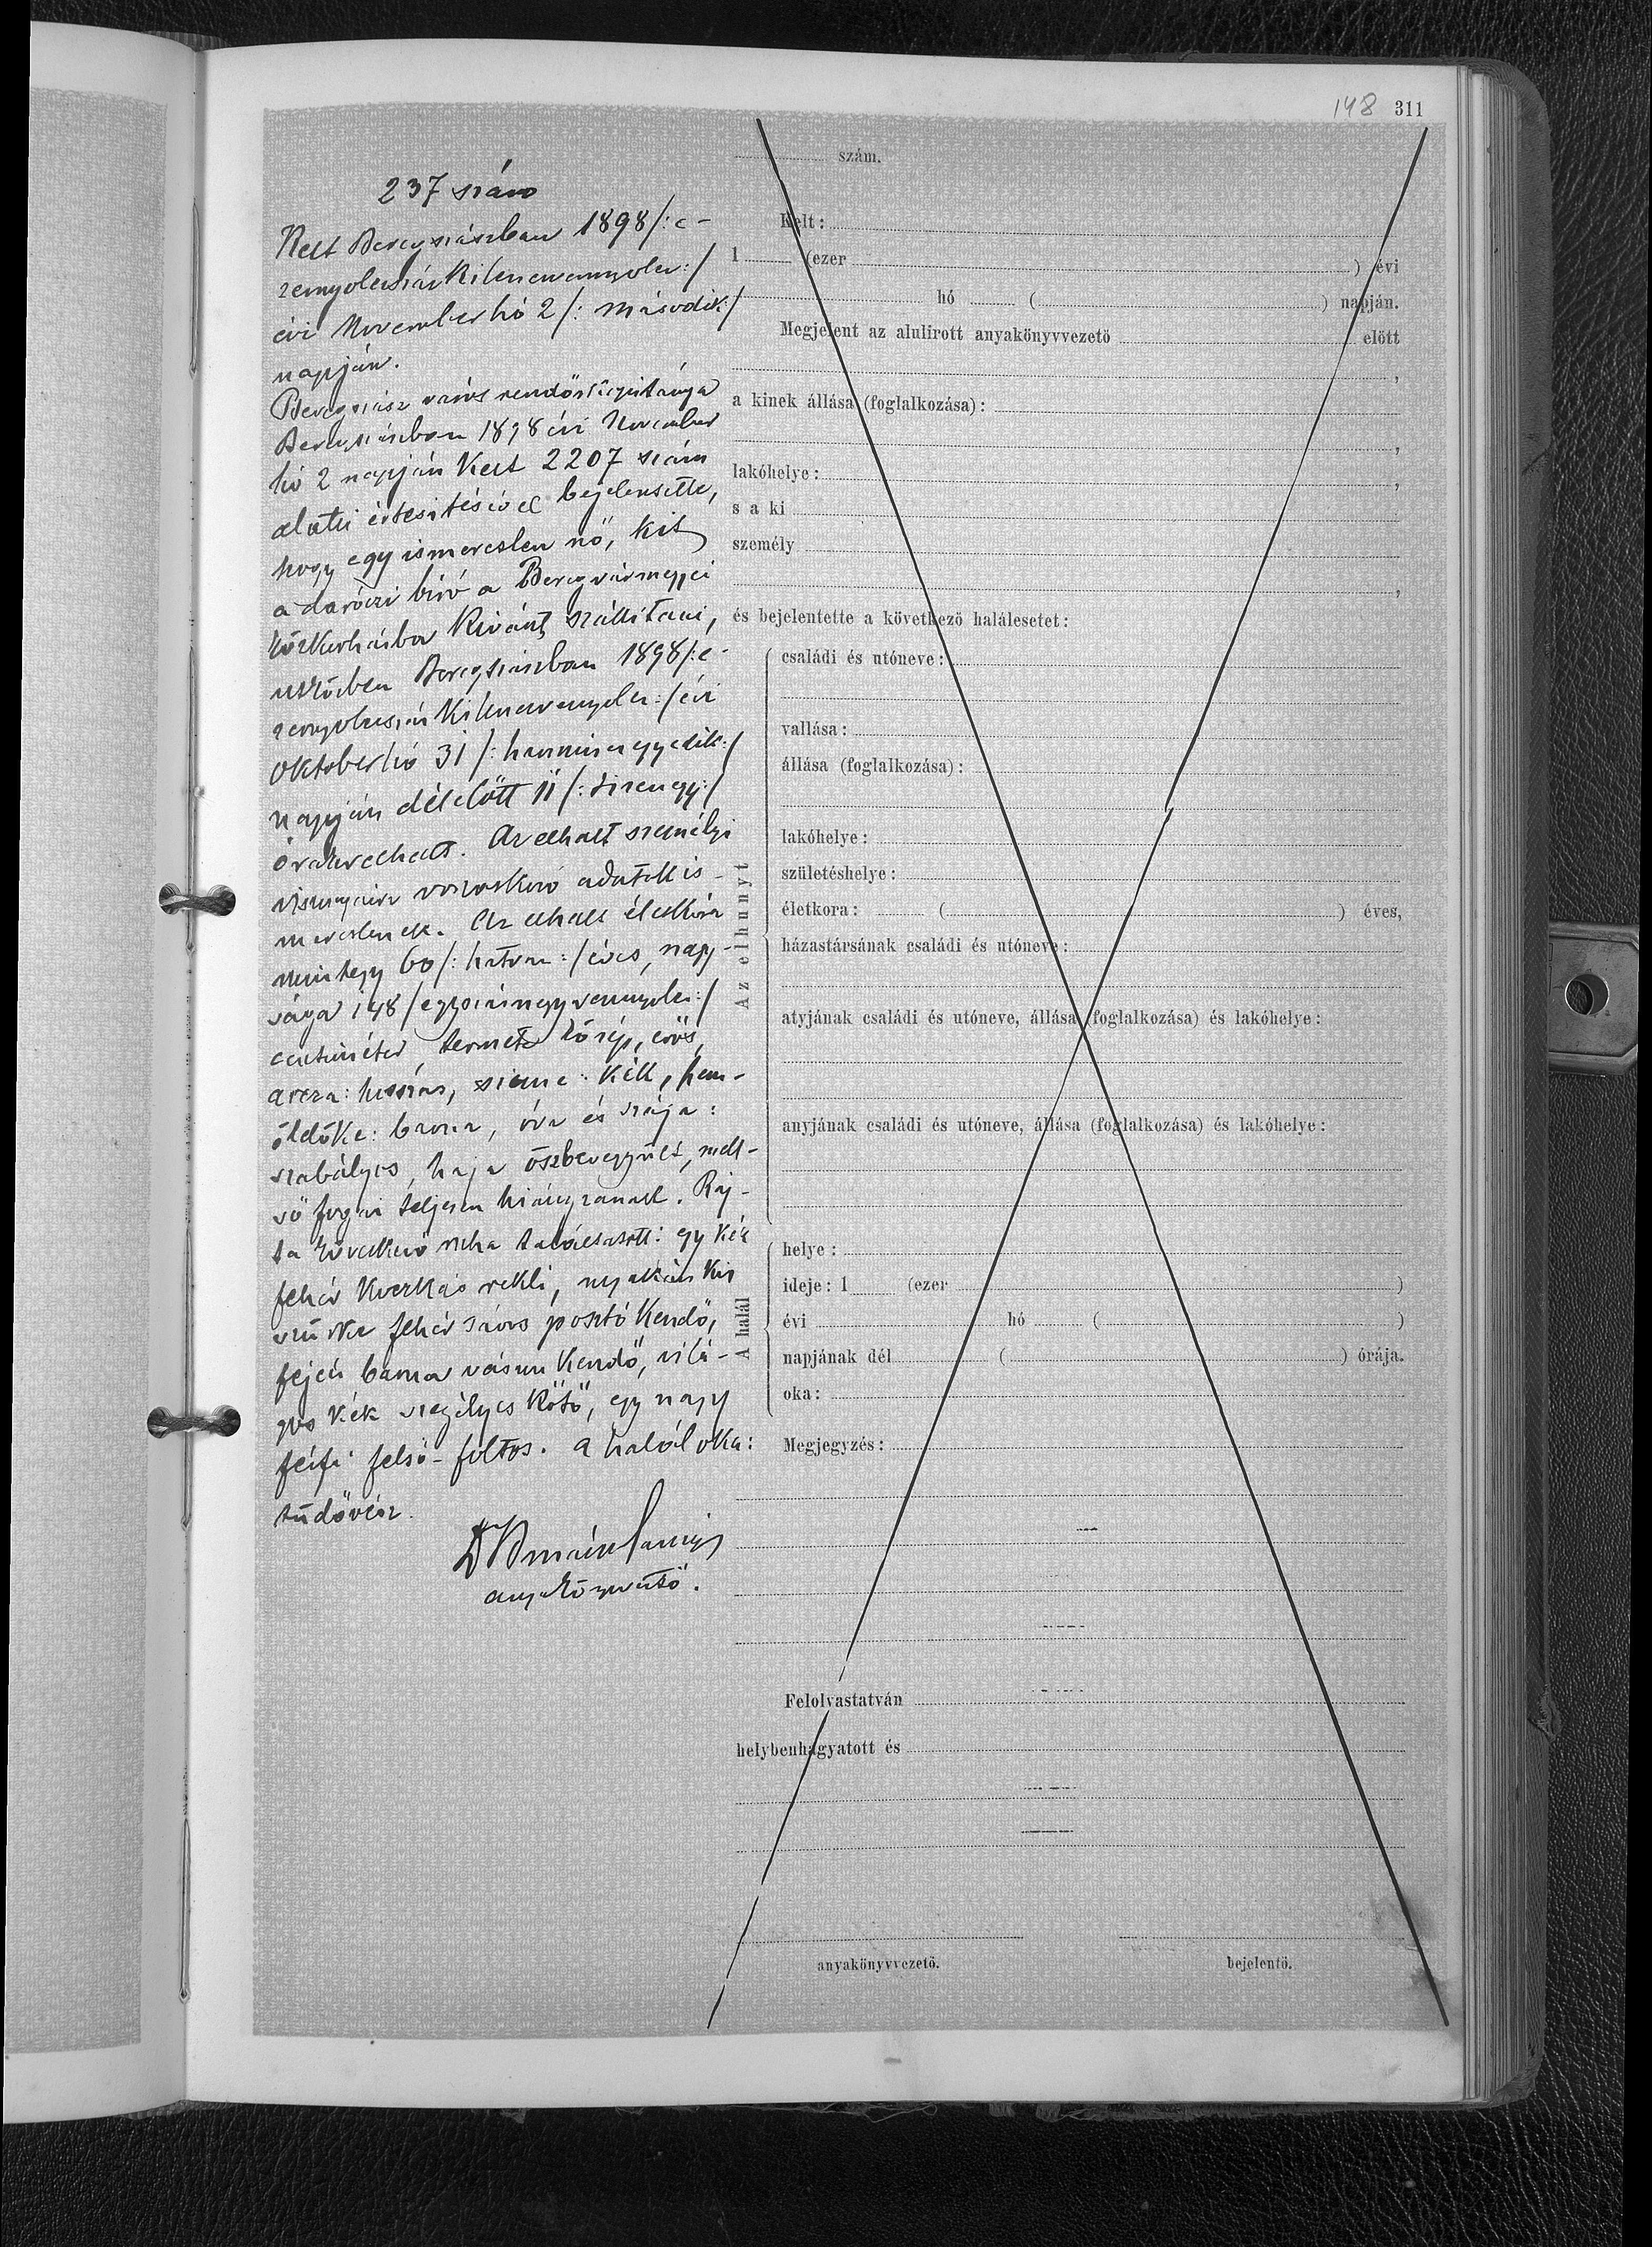 148 311
237 szám
Kelt Beregszászban 1898/: e-
zernyolczszáz kilenczvennyolcz :/
évi November hó 2 /: második :/
napján.
Beregszász város rendőrkapitánya
Beregszászban 1898 évi November
hó 2 napján kelt 2207 szám
alatti értesítésével bejelentette,
hogy egy ismeretlen nő, kit
a daróczi biró a Beregvármegyei
közkorházba kivánt szállitani,
útközben Beregszászban 1898/: e-
zernyolczszáz kilenczvennyolcz :/ évi
Oktober hó 31 /: harminczegyedik :/
napján délelőtt 11 /: tizenegy :/
órakor elhalt. Az elhalt személyi
viszonyaira vonatkozó adatok is-
meretlenek. Az elhalt életkora
mintegy 60 /: hatvan :/ éves, nagy-
sága 148 / egyszáznegyvennyolcz :/
centiméter, termete közép, erős,
arcza: hosszas, szeme: kék, szem-
öldöke: barna, orra és szája:
szabályos, haja őszbevegyült, mell-
ső fogai teljesen hiányzanak. Raj-
ta következő ruha találtatott: egy kék
fehér kvezkás rekli, nyakán kis
szürke fehér sávos posztó kendő,
fején barna vászon kendő, vilá-
gos kék szegélyes kötő, egy nagy
férfi felső- foltos. A halál oka:
tüdővész.
anyakönyvvezető.
szám.
Kelt:
1 (ezer ) évi
hó ( ) napján.
Megjelent az alulirott anyakönyvvezető előtt
,
a kinek állása (foglalkozása):
,
lakóhelye: ,
s a ki
személy
,
és bejelentette a következő halálesetet:
Az elhunyt
családi és utóneve:
vallása:
állása (foglalkozása):
lakóhelye:
születéshelye:
életkora: ( ) éves,
házastársának családi és utóneve:
atyjának családi és utóneve, állása (foglalkozása) és lakóhelye:
anyjának családi és utóneve, állása (foglalkozása) és lakóhelye:
A halál
helye:
ideje: 1 (ezer )
évi hó ( )
napjának dél ( ) órája.
oka:
Megjegyzés:
Felolvastatván
helybenhagyatott és
anyakönyvvezető. bejelentő.